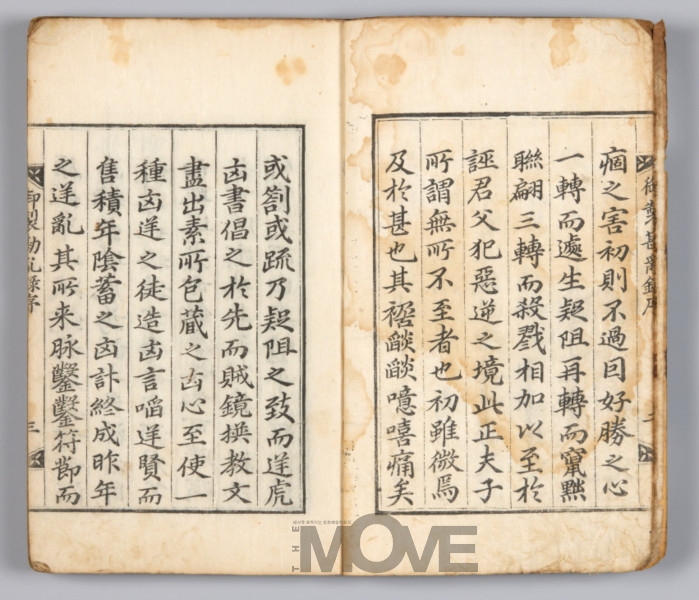 痼之害初則不過曰好勝之心
一轉而遽生疑阻再轉而竄黜
聯翩三轉而殺戮相加以至於
誣君父犯惡逆之境此正夫子
所謂無所不至者也初雖微焉
及於甚也其禍燄燄噫嘻痛矣
或劄或疏乃疑阻之致而逆虎
凶書倡之於先而賊鏡撰教文
盡出素所包藏之凶心至使一
種凶逆之徒造凶言啗逆賢而
售積年陰蓄之凶計終成昨年
之逆亂其所来脉鑿鑿符節而
御製勘亂錄序 三
THE MOVE